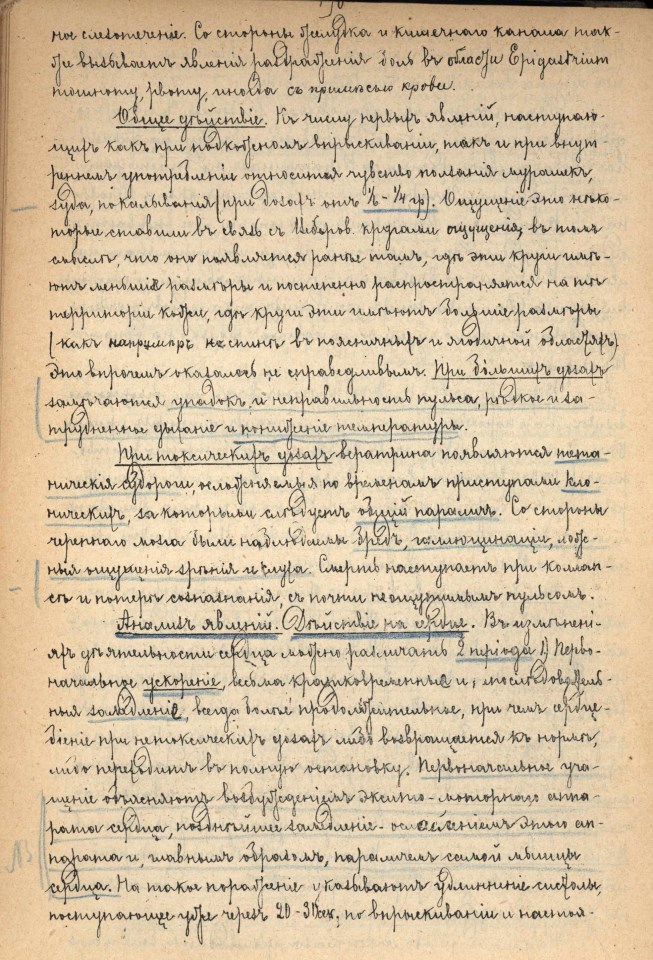 ное слезотеченіе. Со стороны желудка и кишечнаго канала так-
же вызываетъ явленія раздраженія боль въ области Epigastrium
тошноту, рвоту, иногда съ примѣсью крови.
Общее дѣйствіе. Къ числу первыхъ явленій, наступаю-
щихъ какъ при подкожномъ впрыскиваніи, такъ и при внут-
реннемъ употребленіи относится чувство ползанія мурашекъ,
зуда, покалыванія (при дозахъ отъ 1/6 – 1/4 гр). Ощущеніе это нѣко-
торые ставили въ связь съ Веберов. кругами ощущенія, въ томъ
смыслѣ, что оно появляется ранѣе тамъ, гдѣ эти круги имѣ-
ютъ меньшіе размѣры и постепенно распространяется на тѣ
территоріи кожи, гдѣ круги эти имѣютъ большіе размѣры
(какъ напримѣръ на спинѣ въ поясничныхъ и ягодичной областяхъ)
Это впрочемъ оказалось не справедливымъ. При большихъ дозахъ
замѣчаются упадокъ и неправильность пульса, рѣдкое и за-
трудненное дыханіе и пониженіе температуры.
При токсическихъ дозахъ вератрина появляются тета-
ническія судороги, осложняемыя по временамъ приступами кло-
ническихъ, за которыми слѣдуетъ общій параличъ. Со стороны
черепнаго мозга были наблюдаемы бредъ, галлюцинаціи, лож-
ныя ощущенія зрѣнія и слуха. Смерть наступаетъ при коллап-
сѣ и потерѣ сознанія, съ почти неощутимымъ пульсомъ.
Анализъ явленій. Дѣйствіе на сердце. Въ измѣнені-
яхъ дѣятельности сердца можно различать 2 періода 1) Перво-
начальное ускореніе, весьма кратковременные и, послѣдователь-
ныя замедленіе, всегда болѣе продолжительное, при чемъ сердце-
біеніе при нетоксическихъ дозахъ либо возвращается къ нормѣ,
либо переходитъ въ полную остановку. Первоначальное уча-
щеніе объясняютъ возбужденіемъ эксито-моторнаго аппа-
рата сердца, позднѣйшее замедленіе - ослабленіемъ этого ап-
парата и, главнымъ образомъ, параличемъ самой мышцы
сердца. На такое пораженіе указываютъ удлиненіе систолы,
поступающее уже черезъ 20 - 30 сек. по впрыскиваніи и настоя-